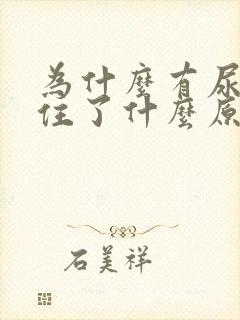 為什麼有尿
住了什麼原
石美祥